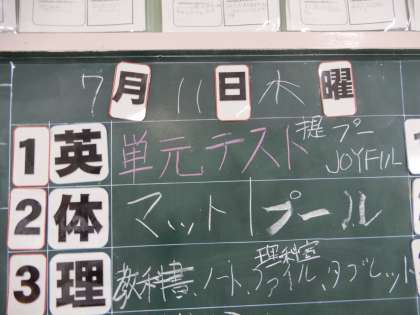 7月11日木曜
1 英 単元テスト 提 プー
JOYFUL
2 体 マット|プール
理科室
3 理 教科書、ノート、ファイル、タブレット